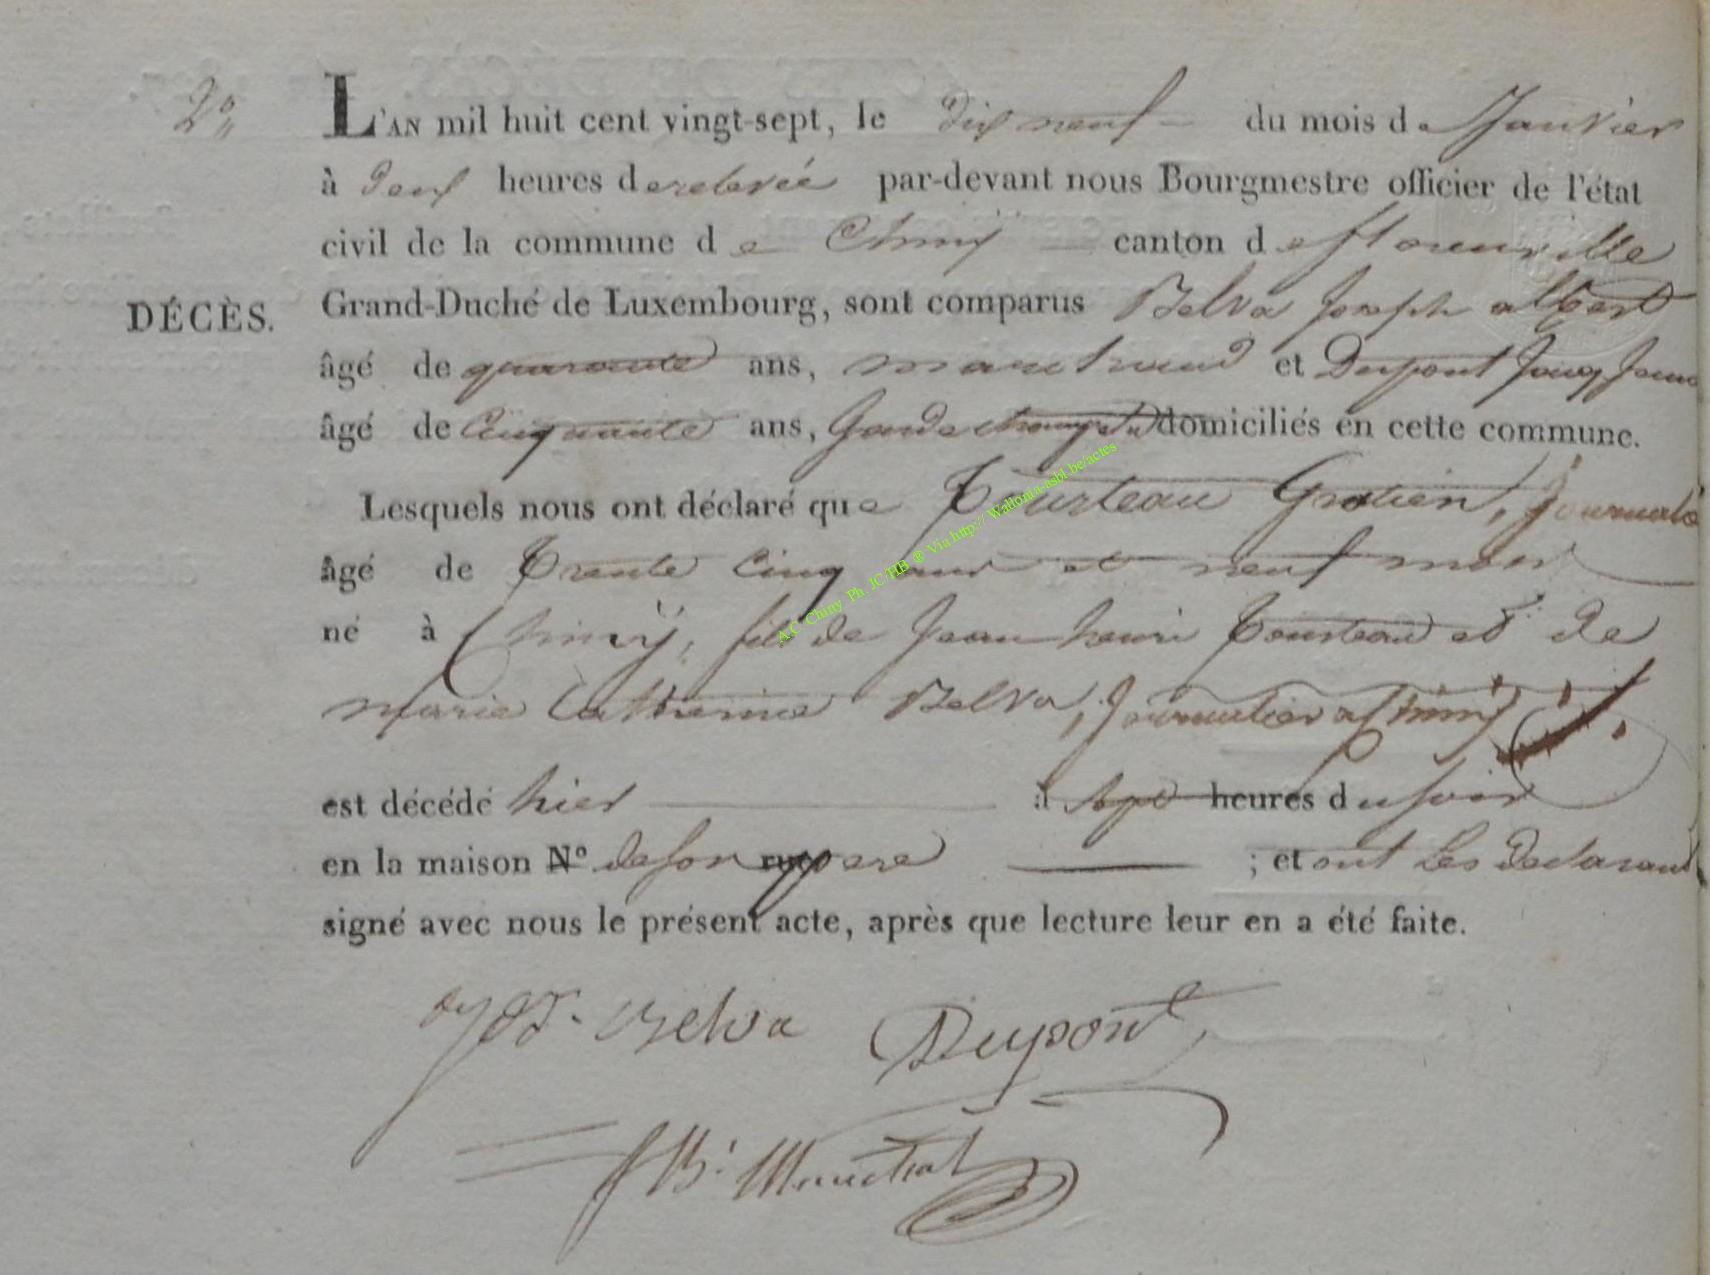 2°
L'AN mil huit cent vingt-sept, le dix neuf du mois de Janvier
à deux heures de relevée par-devant nous Bourgmestre officier de l'état
civil de la commune de Chinÿ canton de florenville
DÉCÈS.
Grand-Duché de Luxembourg, sont comparus Belva Joseph albert
âgé de quarante ans, marchand et Dupont
âgé de Cinquante ans, Garde champetre domiciliés en cette commune.
Lesquels nous ont déclaré que Tourteau Gratien, Journalier
âgé de Trente Cinq ans et neuf mois
né à Chinÿ, fils de Jean henri Tourteau et de
marie Catherine Belva, Journalier a Chinÿ
est décédé hier à sept heures du soir
en la maison N° de son rue pere ; et ont Les declarant
signé avec nous le présent acte, après que lecture leur en a été faite.
Belva Dupont
A.C. Chiny Ph. JC/HB ® Via http:// Wallonia-asbl.be/actes